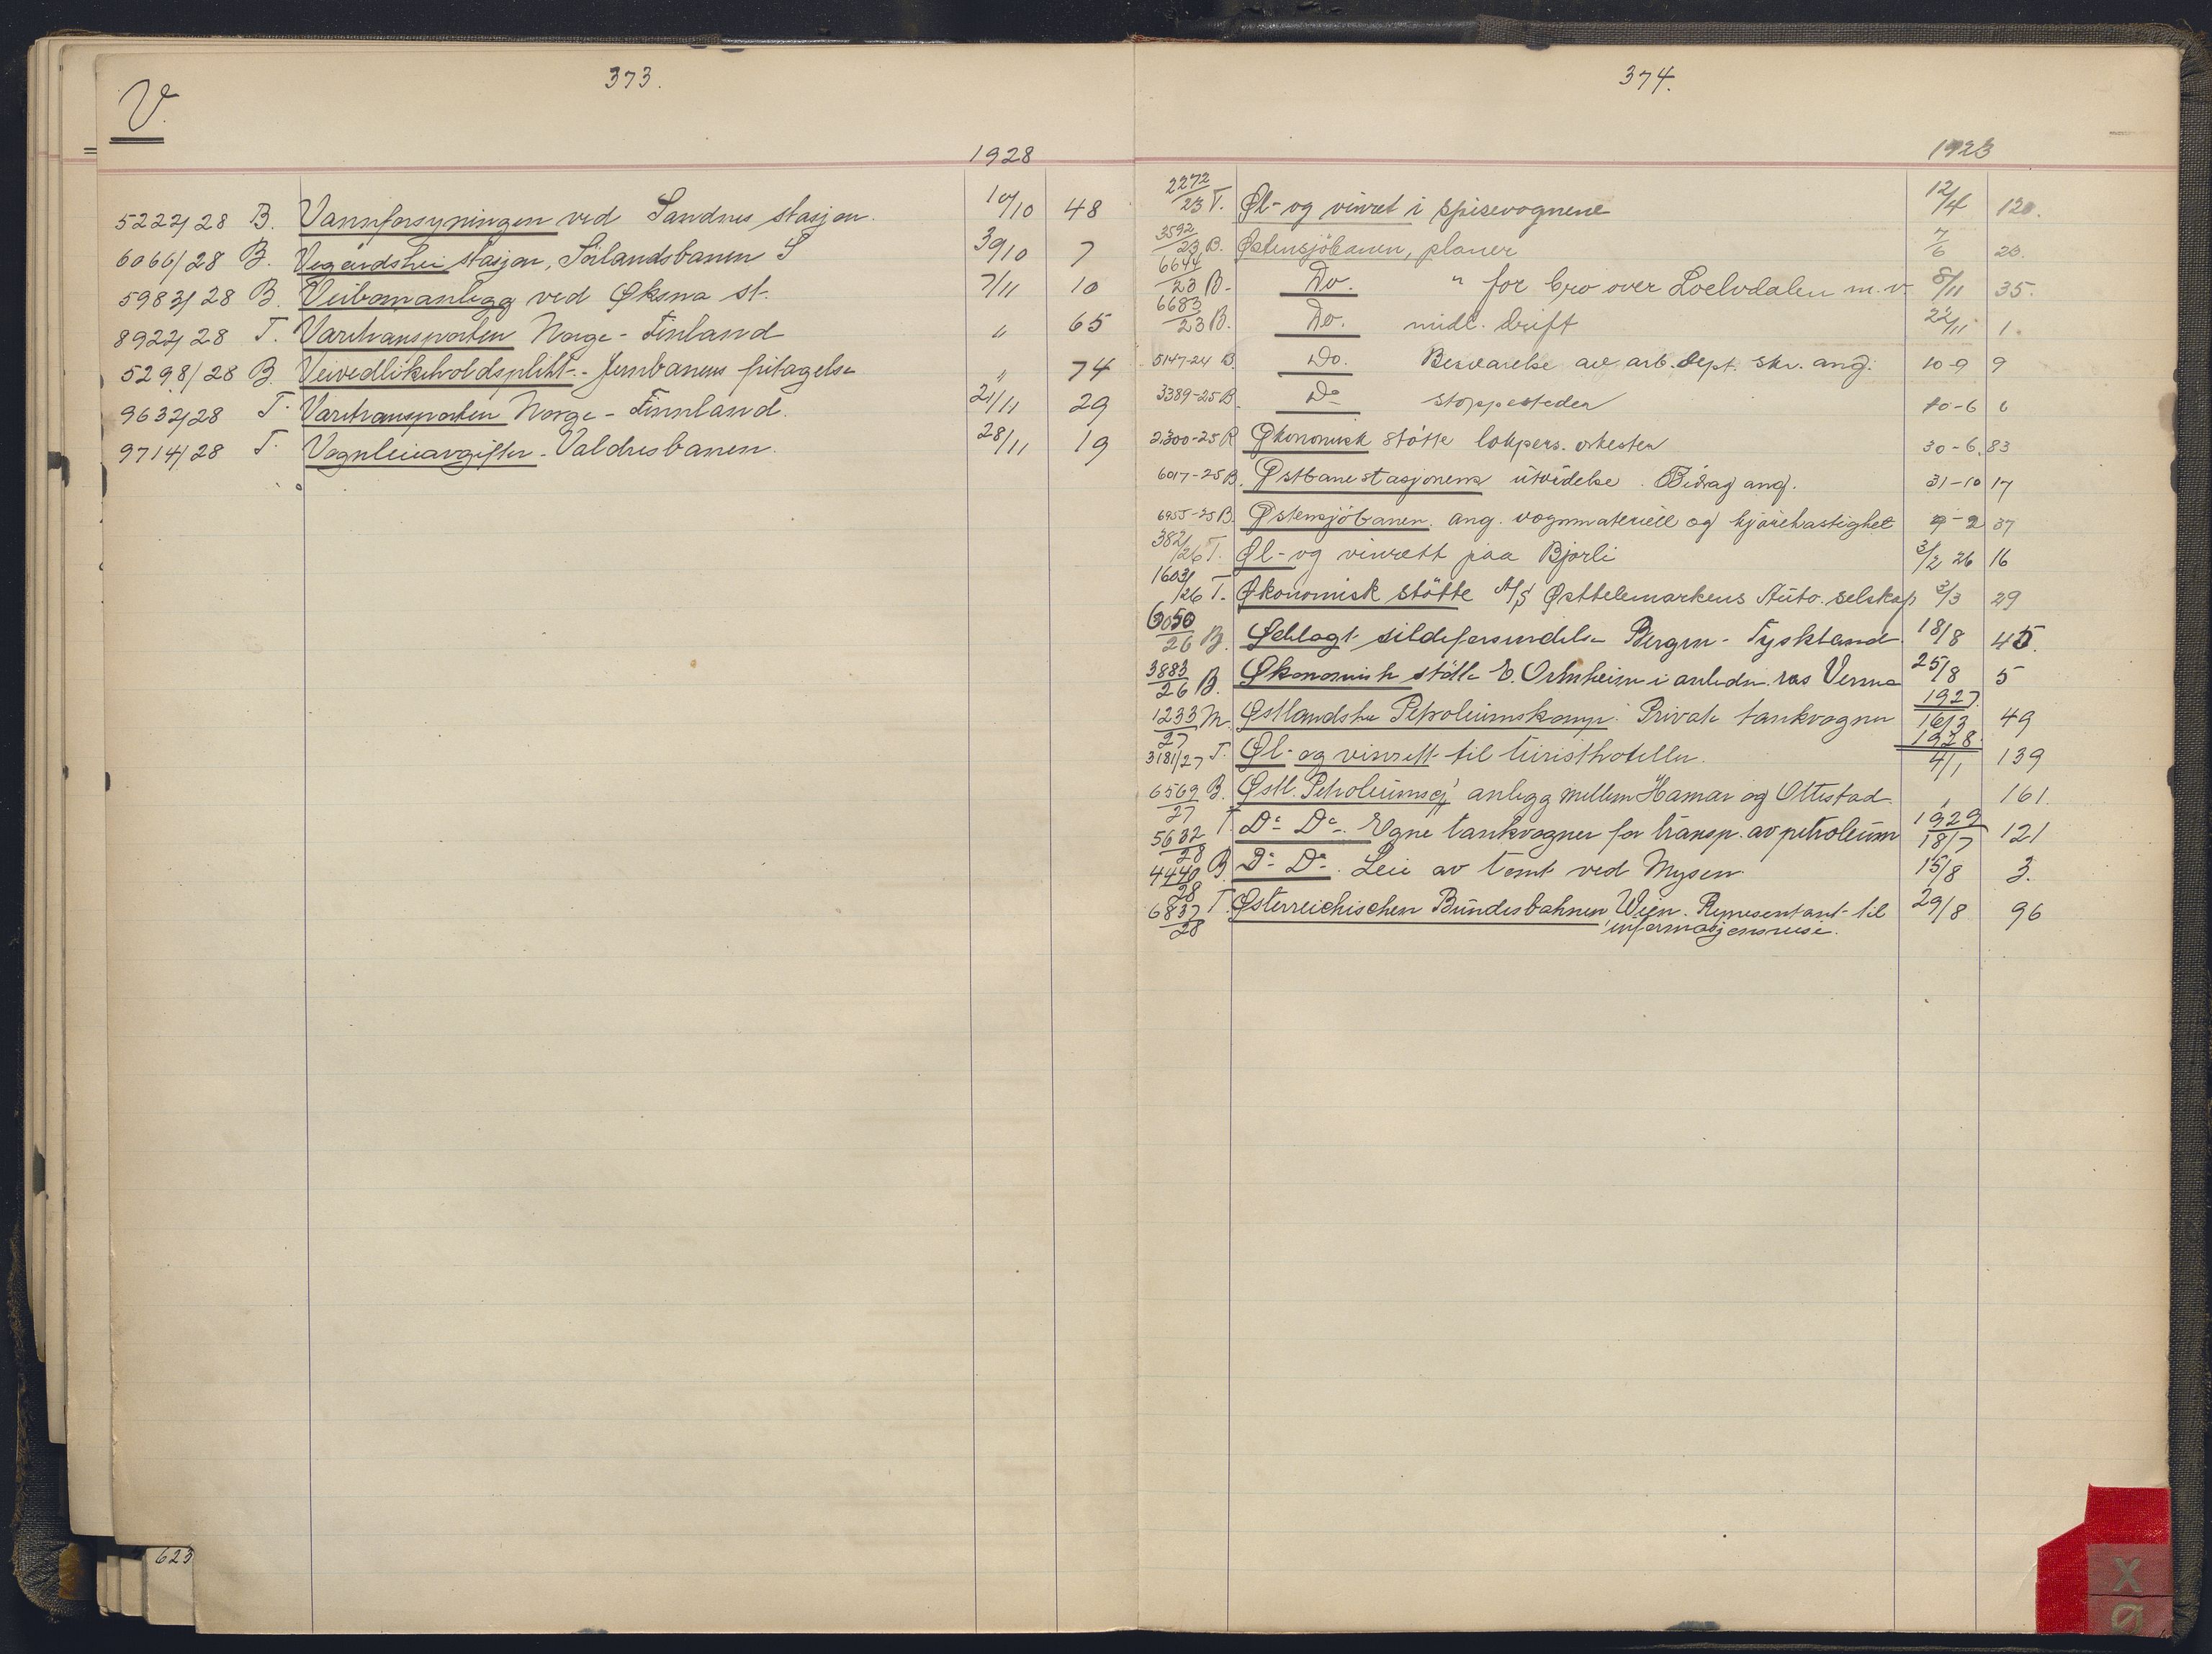 373.
V.
1928
5222/28 B. Vannforsyningen ved Sandnes stasjon. 10/10 48
6066/28 B. Vegårdshei stasjon, Sørlandsbanen S 30/10 7
5983/28 B. Veibomanlegg ved Øksna st. 7/11 10
8922/28 T. Varetransporten Norge - Finland " 65
5298/28 B. Veivedlikeholdsplikt - Jernbanens fritagelse " 74
9632/28 T. Varetransporten Norge - Finnland. 21/11 29
9714/28 T. Vognleieavgifter - Valdresbanen. 28/11 19
623
374.
1923
2272/23 T. Øl- og vinret i spisevognene 12/4 120.
3592/23 B. Østensjöbanen, planer 7/6 23.
6644/23 B. Do. " for bro over Loelvdalen m.v. 8/11 35.
6683/23 B. Do. midl. drift 22/11 1.
5147-24 B. Do. Besvarelse av arb. dept. skr. ang. 10-9 9
3389-25 B. Do stoppesteder 10-6 6
2300-25 R Økonomisk støtte lokpers. orkester 30-6. 83
6017-25 B. Østbanestasjonens utvidelse. Bidrag ang. 31-10 17
6955-25 B. Østensjöbanen. ang. vognmateriell og kjørehastighet 9-2 37
382/26 T. Øl- og vinrett paa Bjorli 3/2 26 16
1603/26 T. Økonomisk støtte A/S Østtelemarkens Auto. selskap 3/3 29
6050/26 B. Ødelagt sildeforsendelse Bergen - Tyskland 18/8 45.
3883/26 B. Økonomisk støtte E. Ormheim i anledn. ras Verma 25/8 5
1927.
1233/27 M. Østlandske Petroleumskomp. Private tankvogner 16/3 49
1928.
3181/27 T. Øl- og vinrett til turisthoteller. 4/1 139
6569/27 B. Østl. Petroleumscj anlegg mellem Hamar og Ottestad. " 161.
1929
5632/28 T. Do- Do-. Egne tankvogner for transp. av petroleum 18/7 121
4440/28 B. Do- Do-. Leie av tomt ved Mysen. 15/8 3.
6837/28 T. Østerreichischen Bundesbahnen, Wien. Representant til 29/8 96
informasjonsreise.
X
Ø